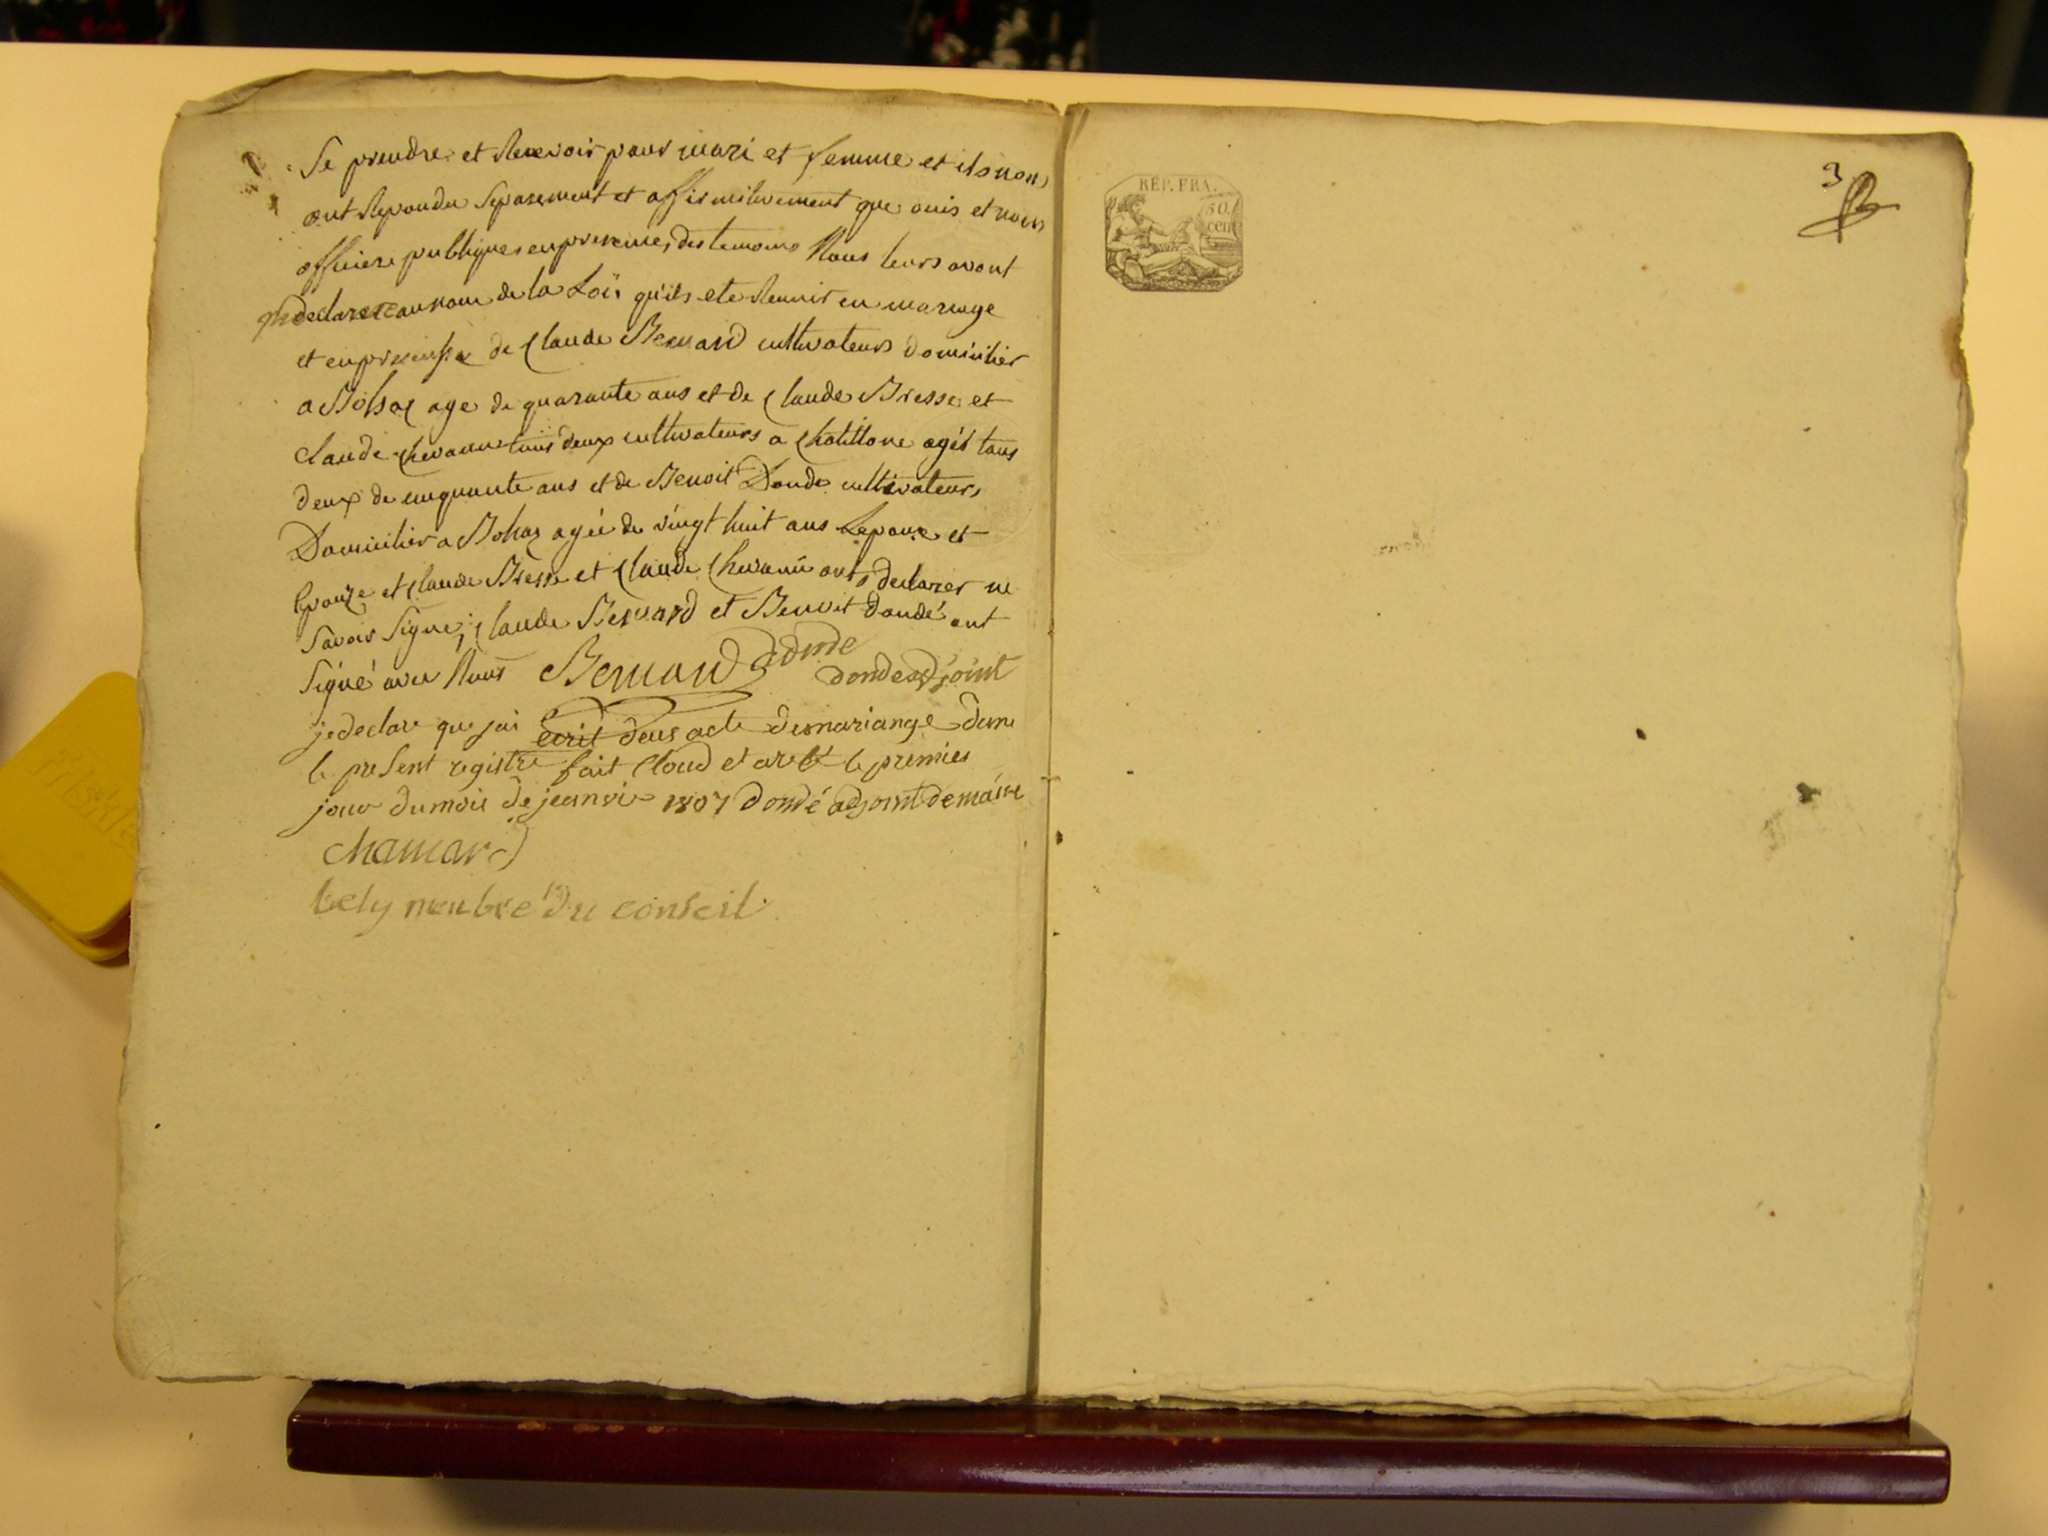 Se prendre et Recevoir pour mari et femme et ils nou
ont Repondu Separement et affirmitivement que ouis et nous
officiere publique en presence des temoins Nous leurs avont
declarer au nom de la Loi qu'ils ete Reunir en mariage
et en presensse de Claude Bernard cultivateurs domicilier
a Bohaz age de quarante ans et de Claude Bresse et
Claude Chevanne tous deux cultivateurs a Chatillone agés tous
deux de cinquante ans et de Benoit Donde cultivateurs
Domicilier a Bohaz agée de vingt huit ans Lepouze et
Epouze et Claude Bresse et Claude Chevanne onts declarer ne
Savoir Signe; Claude Bernard et Benoit dondé ont
Signé avec Nous Bernard donde
donde adjoint
je declare que jai écrit deus acte de mariange dans
le present registre fait Cloud et areté le premier
jour du mois de jeanvie 1807 dondé adjoint de maire
Chanard
bely menbre du conseil
REP. FRA.
50.
cen
3